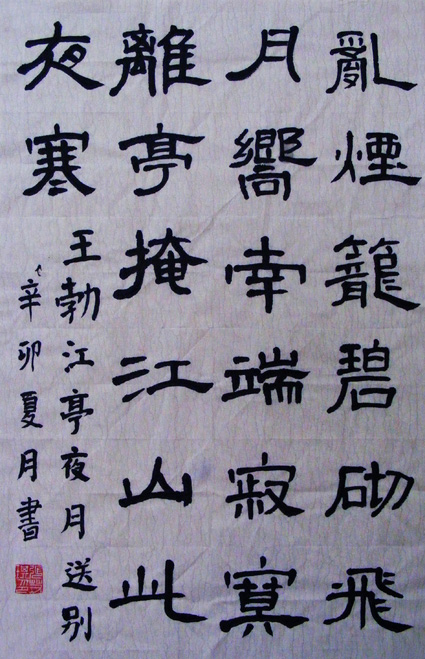 亂煙籠碧砌飛
月嚮南端寂寞
離亭掩江山此
夜寒
王勃江亭夜月送别
辛卯夏月書